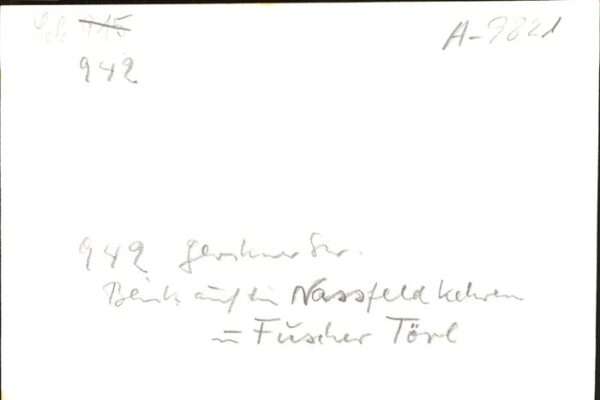 A-7821
942
942 Glockner Str.
Blick auf die Nassfeld Kehren
u Fuscher Törl